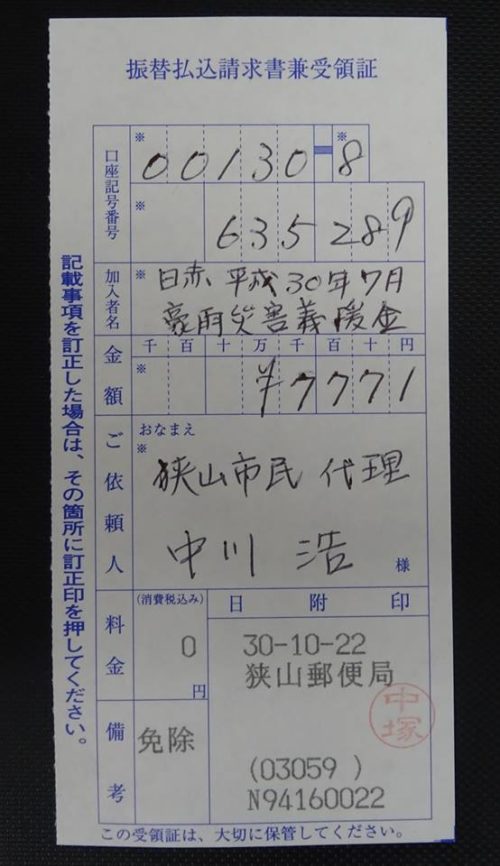 振替払込請求書兼受領証
口座記号番号
※ 00130-8 ※
※ 635289
加入者名
※ 日赤 平成30年7月
豪雨災害義援金
金額
千 百 十 万 千 百 十 円
※ ¥7771
ご依頼人
おなまえ
※
狭山市民 代理
中川 浩 様
料金
(消費税込み)
0
円
日 附 印
30-10-22
狭山郵便局
中塚
(03059 )
N94160022
備考
免除
この受領証は、大切に保管してください。
記載事項を訂正した場合は、その箇所に訂正印を押してください。